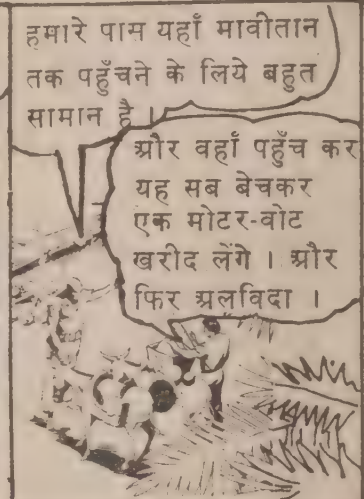 हमारे पास यहाँ मावीतान
तक पहुँचने के लिये बहुत
सामान है ।
और वहाँ पहुँच कर
यह सब बेचकर
एक मोटर-वोट
खरीद लेंगे । और
फिर अलविदा ।